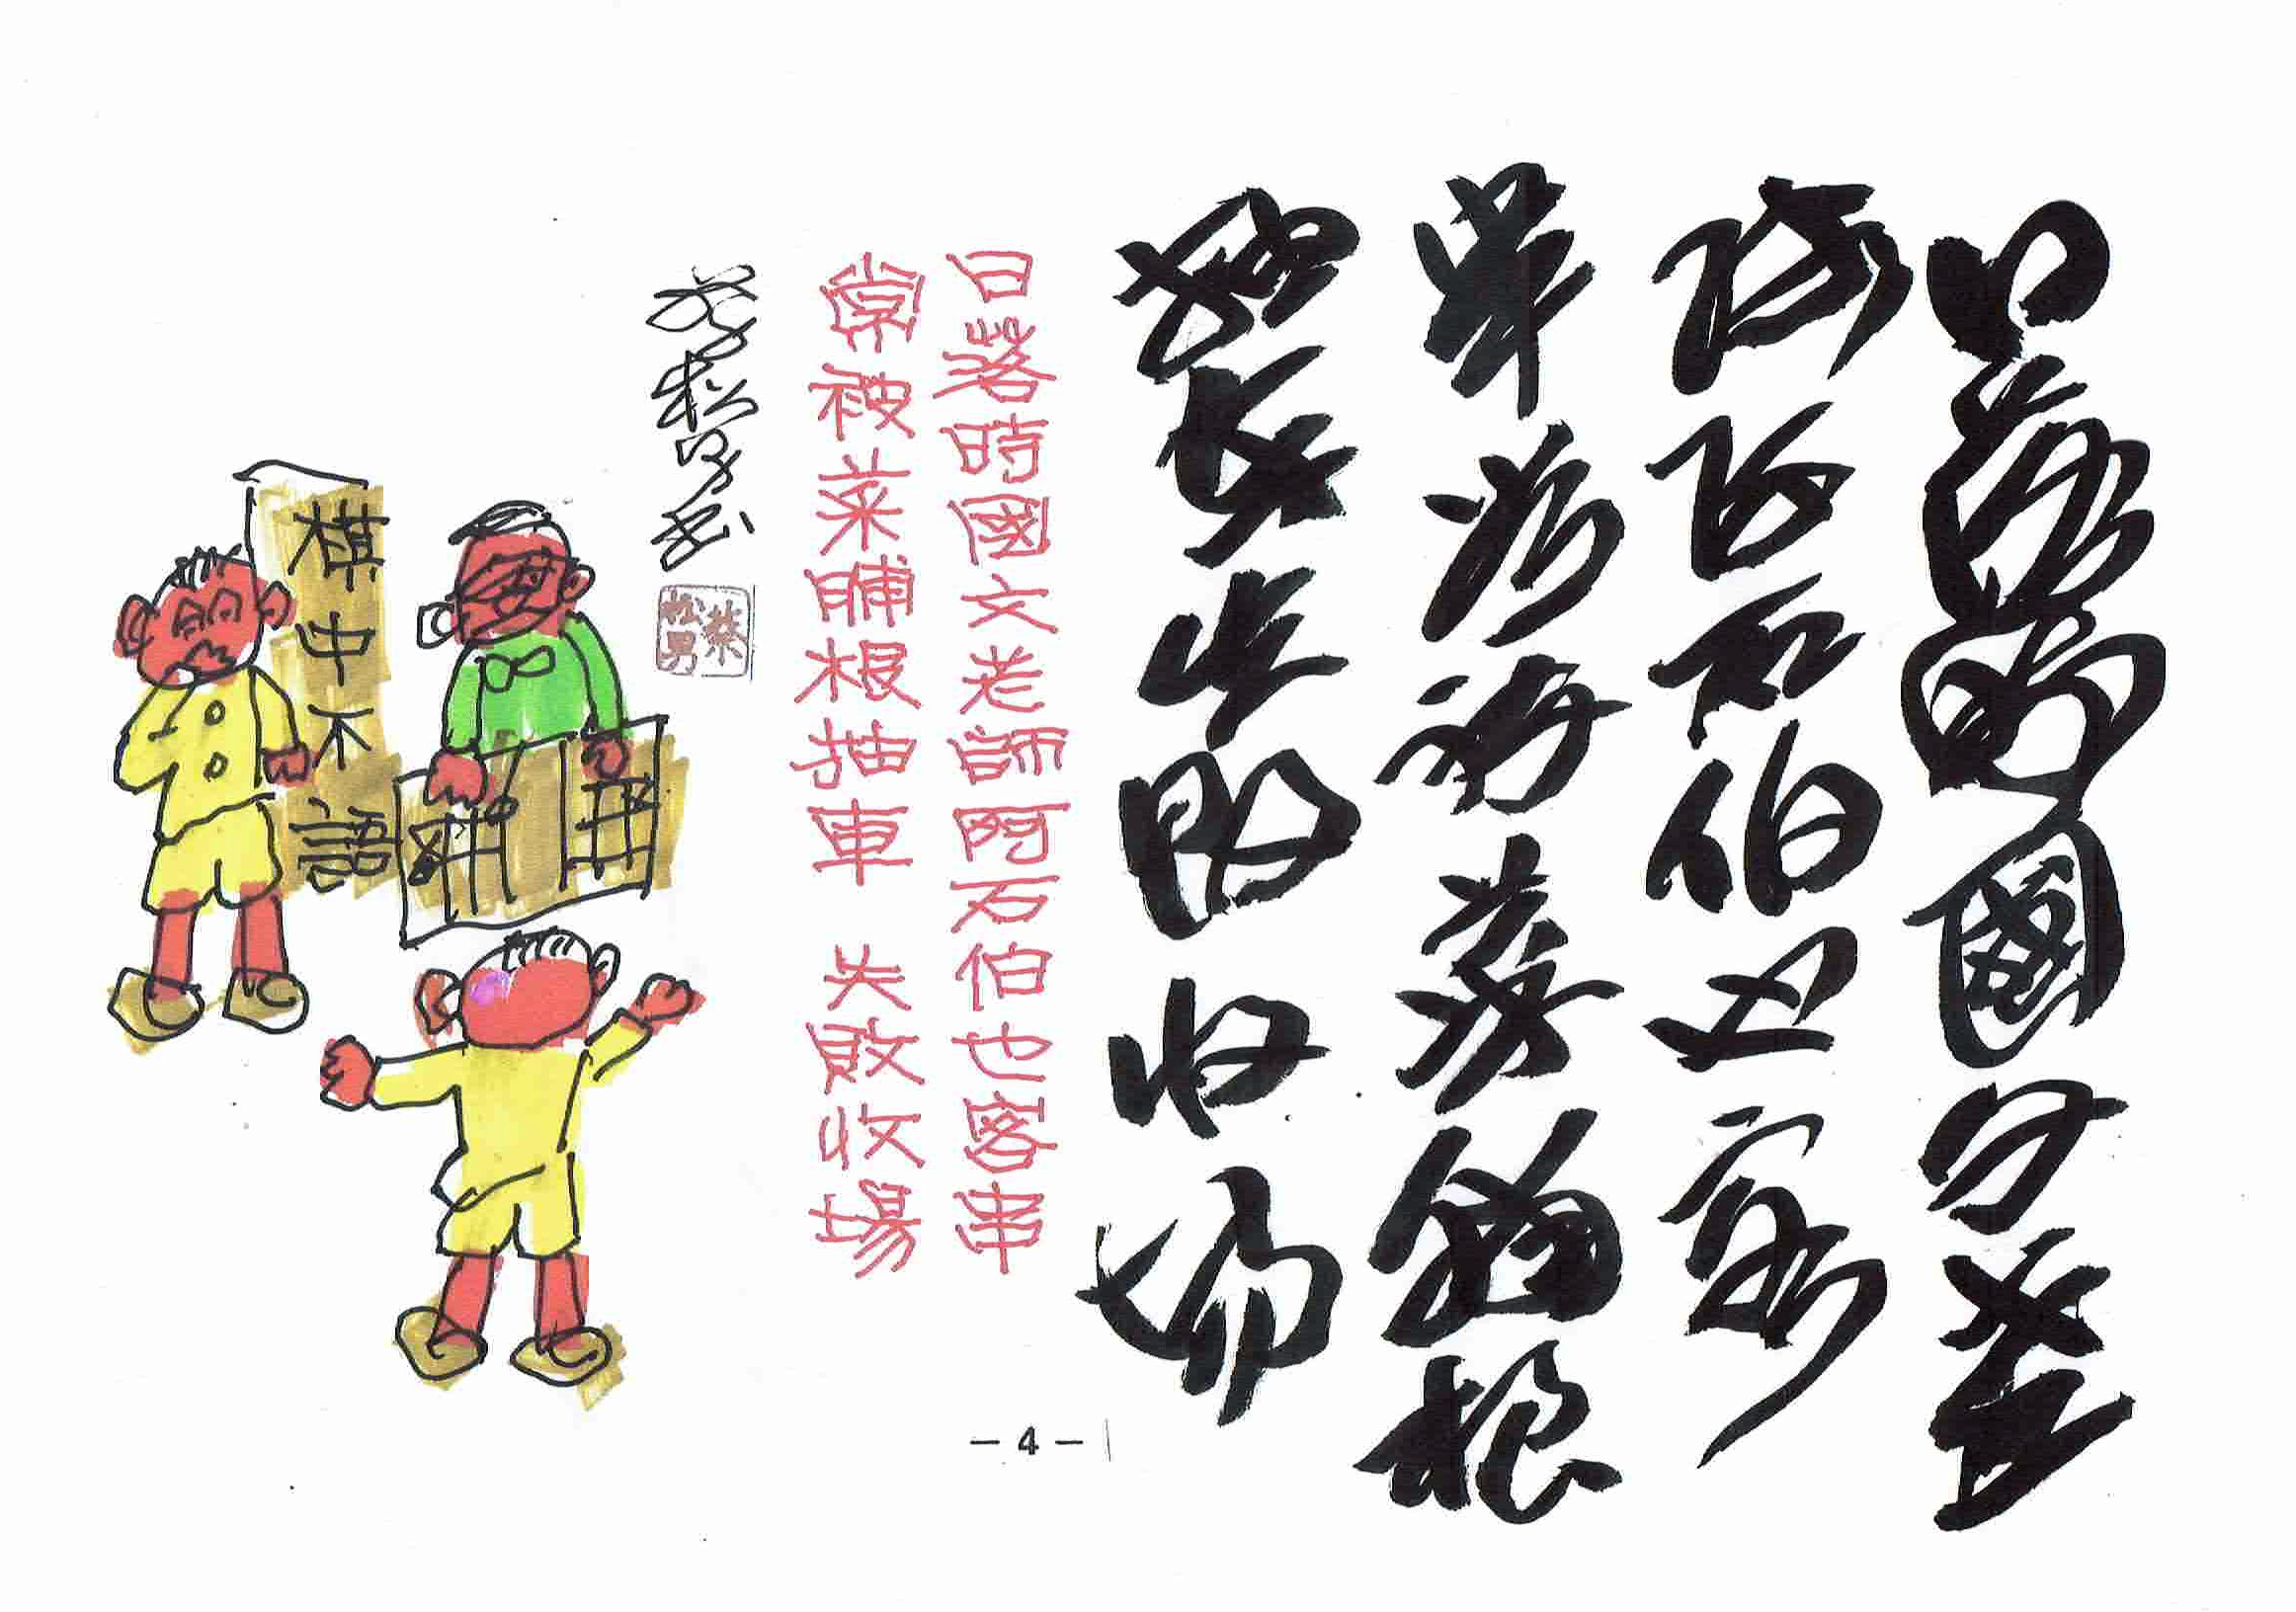 日落時國文老
師阿石伯也客
串常被菜脯根
抽車失敗收場
日落時國文老師阿石伯也客串
常被菜脯根抽車 失敗收場
蔡松男書
蔡松男
棋中不語
- 4 -